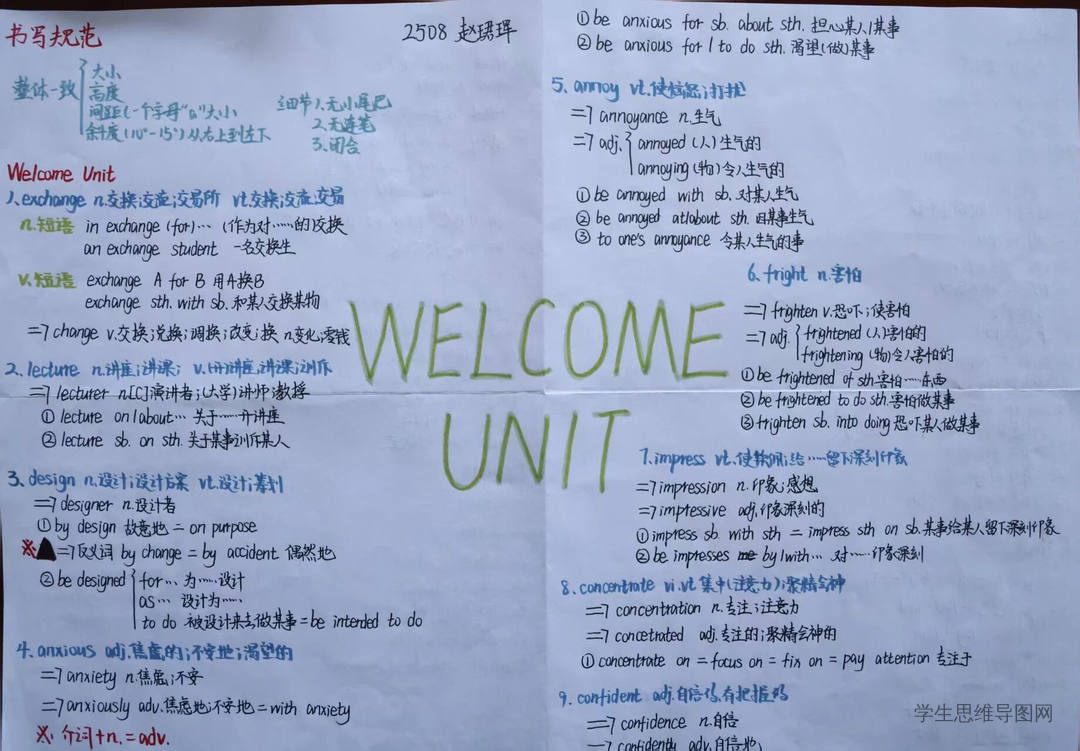 书写规范
2508 赵珺珲
整体一致
大小
高度
间距(一个字母"a"大小
斜度(10°-15°)从右上到左下
细节 1.无小尾巴
2.无连笔
3.闭合
Welcome Unit
1.exchange n.交换;交流;交易所 vt.交换;交流;交易
n.短语 in exchange (for)… (作为对……的)交换
an exchange student 一名交换生
v.短语 exchange A for B 用A换B
exchange sth. with sb. 和某人交换某物
⇒ change v.交换;兑换;调换;改变;换 n.变化;零钱
2.lecture n.讲座;讲课; v.(开)讲座;讲课;训斥
⇒ lecturer n.[C]演讲者;(大学)讲师;教授
① lecture on/about… 关于……开讲座
② lecture sb. on sth. 关于某事训斥某人
3.design n.设计;设计方案 vt.设计;筹划
⇒ designer n.设计者
① by design 故意地 = on purpose
※ ⇒反义词 by change = by accident 偶然地
② be designed
for… 为……设计
as… 设计为……
to do 被设计来去做某事 = be intended to do
4.anxious adj.焦虑的;不安地;渴望的
⇒ anxiety n.焦虑;不安
⇒ anxiously adv.焦虑地;不安地 = with anxiety
※.介词+n.=adv.
WELCOME
UNIT
① be anxious for sb. about sth. 担心某人/某事
② be anxious for / to do sth. 渴望(做)某事
5.annoy vt.使恼怒;打扰
⇒ annoyance n.生气
⇒ adj.
annoyed (人)生气的
annoying (物)令人生气的
① be annoyed with sb. 对某人生气
② be annoyed at/about sth. 因某事生气
③ to one's annoyance 令某人生气的事
6.fright n.害怕
⇒ frighten v.恐吓;使害怕
⇒ adj.
frightened (人)害怕的
frightening (物)令人害怕的
① be frightened of sth.害怕……东西
② be frightened to do sth.害怕做某事
③ frighten sb. into doing 恐吓某人做某事
7.impress vt.使钦佩;给……留下深刻印象
⇒ impression n.印象;感想
⇒ impressive adj.印象深刻的
① impress sb. with sth = impress sth on sb.某事给某人留下深刻印象
② be impresses by/with… 对……印象深刻
8.concentrate vi.vt.集中(注意力);聚精会神
⇒ concentration n.专注;注意力
⇒ concetrated adj.专注的;聚精会神的
① concentrate on = focus on = fix on = pay attention 专注于
9.confident adj.自信的,有把握的
⇒ confidence n.自信
⇒ confidently adv.自信地
学生思维导图网